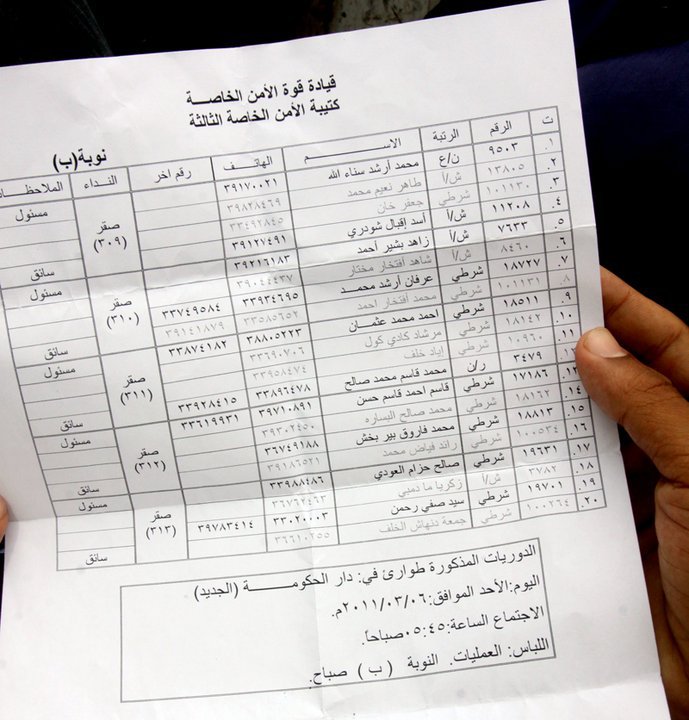 قيادة قوة الأمن الخاصـــة
كتيبة الأمن الخاصة الثالثة
نوبة(ب)
ت الرقم الرتبة الاســـــــم الهاتـف رقم اخر النـداء الملاحظـا
١. ٩٥٠٣ ن/ع محمد أرشد سناء الله ٣٩١٧٠٠٢١ صقر (٣٠٩) مسئول
٢. ١٣٨٠٥ ش/أ طاهر نعيم محمد ٣٩٨٢٨٤٦٩
٣. ١٠١١٣٠ شرطي جعفر خان ٣٣٤٩٢٨٤٥
٤. ١١٢٠٨ ش/أ أسد إقبال شودري ٣٩١٢٧٤٩١ سائق
٥. ٧٦٣٣ ش/أ زاهد بشير أحمد ٣٩٢١٦١٨٣ صقر (٣١٠) مسئول
٦. ٨٤٦٠ ش/أ شاهد أفتخار مختار ٣٩٠٤٤٤٣٧
٧. ١٨٧٢٧ شرطي عرفان أرشد محمـد ٣٣٩٣٤٦٩٥ ٣٣٧٤٩٥٨٤
٨. ١٠١١٣١ شرطي محمد أفتخار احمد ٣٣٥٨٥٦٥٢ ٣٩١٤١٨٧٩ سائق
٩. ١٨٥١١ شرطي احمد محمد عثمـان ٣٨٨٠٥٢٢٣ ٣٣٨٧٤١٨٢ صقر (٣١١) مسئول
١٠. ١٨١٤٢ شرطي مرشاد كادي كول ٣٣٦٩٠٧٠٦
١١. ١٠٩٦٠ شرطي إياد خلف ٣٣٩٥٨٤٧٤
٣٤٧٩ ر/ن محمد قاسم محمد صالح ٣٣٨٩٦٤٧٨ ٣٣٩٢٨٤١٥ سائق
١٣. ١٧١٨٦ شرطي قاسم احمد قاسم حسن ٣٩٧١٠٨٩١ ٣٣٦١٩٩٣١ صقر (٣١٢) مسئول
١٤. ١٨١٦٢ شرطي محمد صالح اليساره ٣٩٣٠٢٤٥٠
١٥. ١٨٨١٣ شرطي محمد فاروق بير بخش ٣٦٧٤٩١٨٨
١٦. ١٠٠٥٣٤ شرطي راند فياض محمد ٣٩١٨٦٥٢١ سائق
١٧. ١٩٦٣١ شرطي صالح حزام العودي ٣٣٩٨٨٤٨٦ صقر (٣١٣) مسئول
١٨. ٣٧٨٢ ش/أ زكريا ما دمبي ٣٦٧٦٢٤٦٣
١٩. ١٩٧٠١ شرطي سيد صفي رحمن ٣٣٠٢٠٠٠٣ ٣٩٧٨٣٤١٤
٢٠. ١٠٠٢٦٤ شرطي جمعة دنهاش الخلف ٣٦٦١٠٢٥٥ سائق
الدوريات المذكورة طوارئ في: دار الحكومـــــــة (الجديد)
اليوم:الأحد الموافق:٢٠١١/٠٣/٠٦م.
الاجتماع الساعة:٠٥:٤٥صباحاً.
اللباس: العمليات. النوبة ( ب ) صباح.